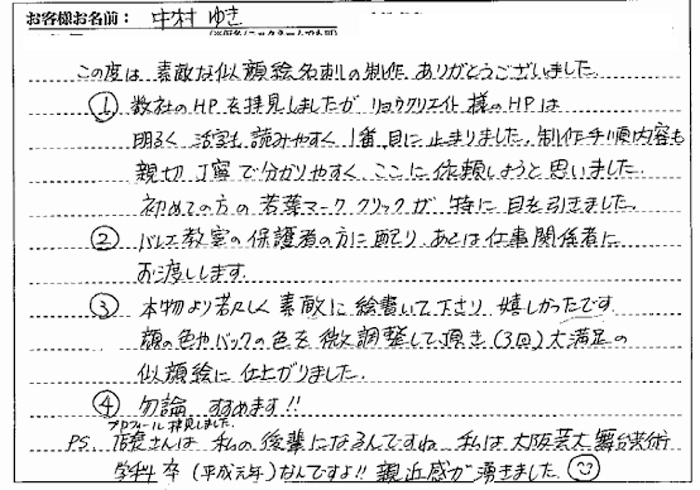 お客様お名前： 中村 ゆき
この度は 素敵な似顔絵名刺の制作 ありがとうございました。
① 数社のHPを拝見しましたが リョウクリエイト 様のHPは
明るく 活字も 読みやすく 1番 目に止まりました。制作手順内容も
親切 丁寧で分かりやすく、ここに依頼しようと思いました。
初めての方の 若葉マーク クリックが 特に 目を引きました。
② バレエ教室の保護者の方に配り、あとは仕事関係者に
お渡しします。
③ 本物より若々しく 素敵に 絵書いて下さり 嬉しかったです
顔の色やバックの色を 微調整して頂き (3回) 大満足の
似顔絵に 仕上がりました。
④ 勿論 すすめます!!
プロフィール 拝見しました。
PS. さんは 私の後輩になるんですね 私は 大阪芸大 舞台芸術
学科 卒 (平成元年) なんですよ!! 親近感が 湧きました。